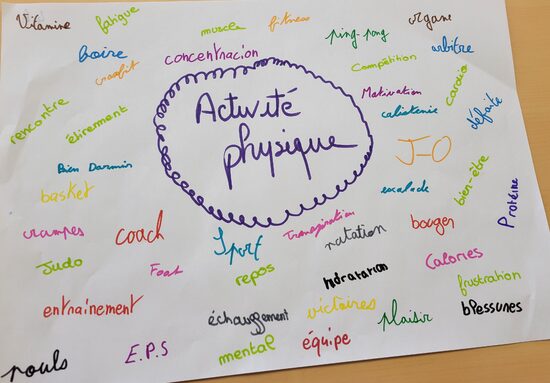 Vitamine
fatigue
muscle
fitness
ping-pong
organe
boire
concentnacion
arbitre
crossfit
Compétition
cardio
Motivation
calistenie
défaite
rencontre
étirement
Activité
physique
J-O
Bien Darmin
basket
escalade
bien-être
Protéine
crampes
coach
Sport
Transpiration
natation
bouger
Judo
Foot
repos
hydratation
Calories
frustration
entraînement
échauffement
victoires
plaisir
blessures
pouls
E.P.S
mental
équipe